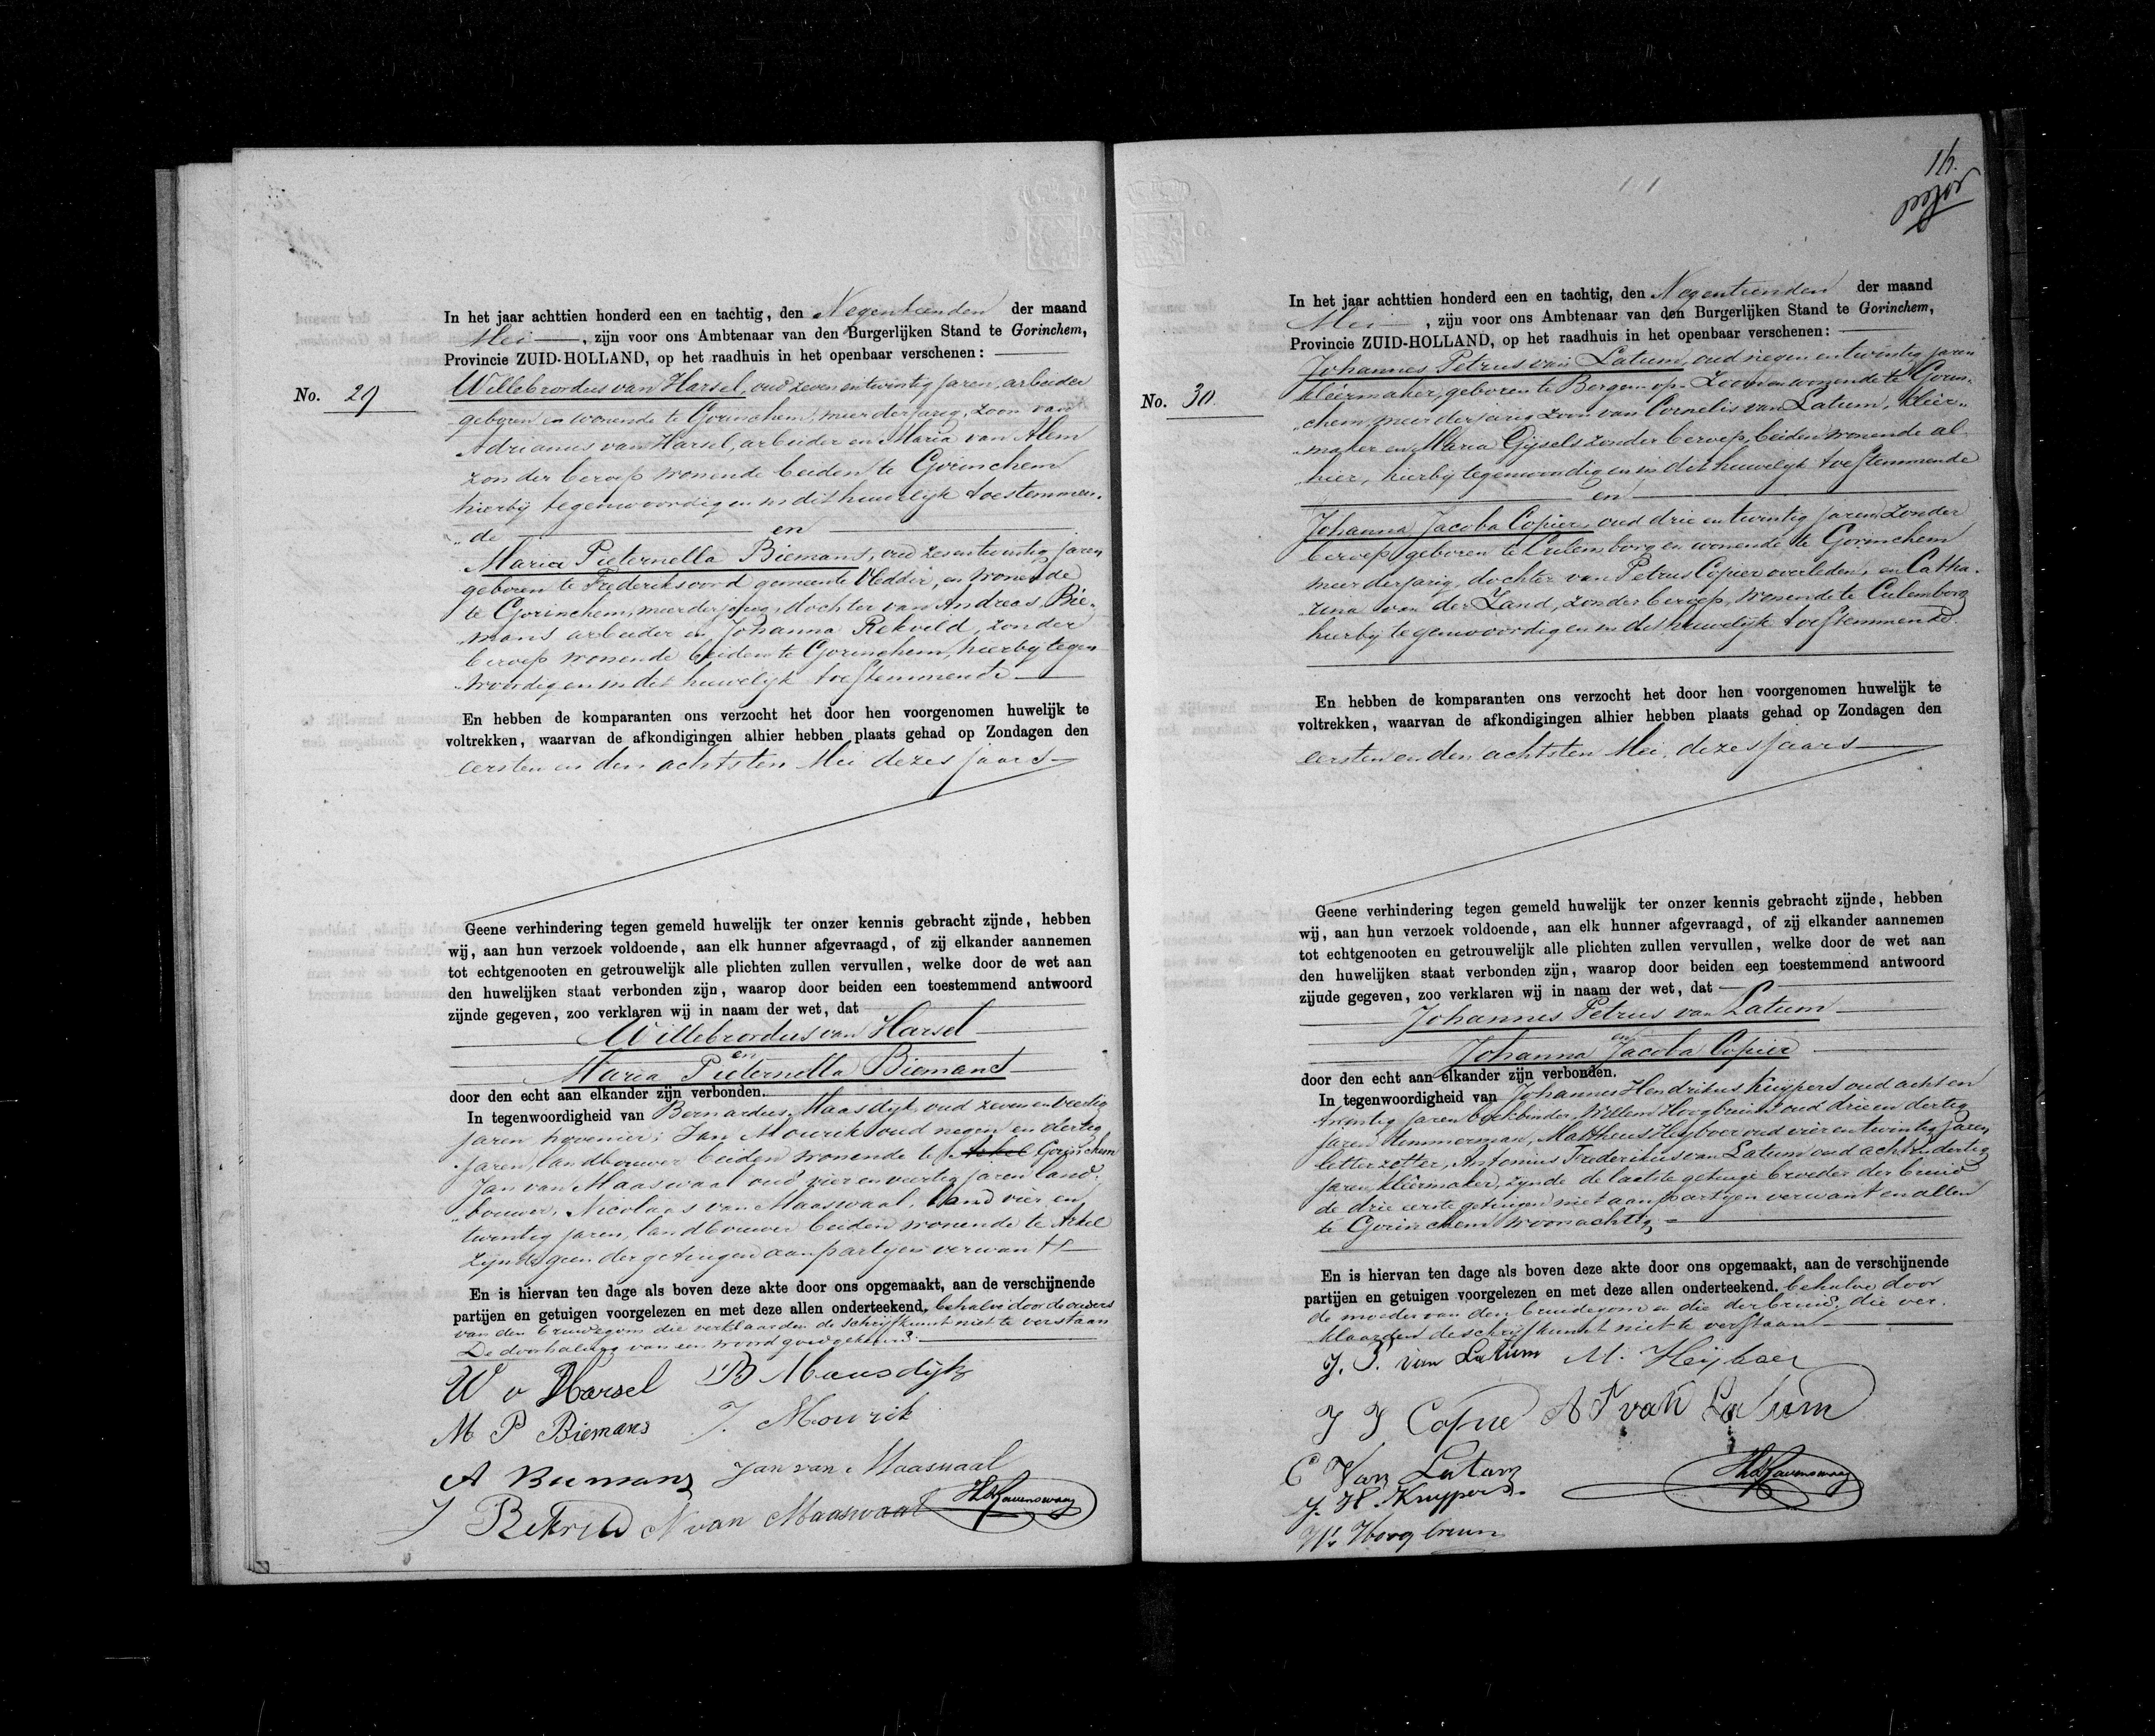 In het jaar achttien honderd een en tachtig, den Negentienden der maand
Mei, zijn voor ons Ambtenaar van den Burgerlijken Stand te Gorinchem,
Provincie ZUID-HOLLAND, op het raadhuis in het openbaar verschenen:
No. 29
Willebrordus van Harsel, oud zeven en twintig jaren, arbeider
geboren en wonende te Gorinchem, meerderjarig, zoon van
Adrianus van Harsel, arbeider en Maria van Alem
zonder beroep wonende beiden te Gorinchem
hierbij tegenwoordig en in dit huwelijk toestemmen-
„de en
Maria Pieternella Biemans, oud zes en twintig jaren
geboren te Frederiksoord gemeente Vledder, en wonende
te Gorinchem, meerderjarig, dochter van Andreas Bie-
„mans arbeider en Johanna Rekveld, zonder
beroep wonende beiden te Gorinchem, hierbij tegen-
„woordig en in dit huwelijk toestemmende
En hebben de komparanten ons verzocht het door hen voorgenomen huwelijk te
voltrekken, waarvan de afkondigingen alhier hebben plaats gehad op Zondagen den
eersten en den achtsten Mei dezes jaars
Geene verhindering tegen gemeld huwelijk ter onzer kennis gebracht zijnde, hebben
wij, aan hun verzoek voldoende, aan elk hunner afgevraagd, of zij elkander aannemen
tot echtgenooten en getrouwelijk alle plichten zullen vervullen, welke door de wet aan
den huwelijken staat verbonden zijn, waarop door beiden een toestemmend antwoord
zijnde gegeven, zoo verklaren wij in naam der wet, dat
Willebrordus van Harsel
en
Maria Pieternella Biemans
door den echt aan elkander zijn verbonden.
In tegenwoordigheid van Bernardus Maasdijk oud zeven en veertig
jaren hovenier, Jan Mourik oud negen en dertig
jaren, landbouwer beiden wonende te Arkel Gorinchem
Jan van Maaswaal oud vier en veertig jaren land-
„bouwer, Nicolaas van Maaswaal, oud vier en
twintig jaren, landbouwer beiden wonende te Arkel
zijnde geen der getuigen aan partijen verwant
En is hiervan ten dage als boven deze akte door ons opgemaakt, aan de verschijnende
partijen en getuigen voorgelezen en met deze allen onderteekend, behalve door de ouders
van den bruidegom die verklaarden de schrijfkunst niet te verstaan
De doorhaling van een woord goedgekeurd.
W v Harsel B Maasdijk
M P Biemans J. Mourik
A Biemans Jan van Maaswaal
J Rekveld N van Maaswaal
14.
In het jaar achttien honderd een en tachtig, den Negentienden der maand
Mei, zijn voor ons Ambtenaar van den Burgerlijken Stand te Gorinchem,
Provincie ZUID-HOLLAND, op het raadhuis in het openbaar verschenen:
No. 30.
Johannes Petrus van Latum, oud negen en twintig jaren
kleermaker, geboren te Bergen op Zoom en wonende te Gorin-
„chem, meerderjarig zoon van Cornelis van Latum, kleer-
„maker en Maria Gijsels zonder beroep, beiden wonende al-
„hier, hierbij tegenwoordig en in dit huwelijk toestemmende
en
Johanna Jacoba Copier, oud drie en twintig jaren, zonder
beroep, geboren te Culemborg en wonende te Gorinchem
meerderjarig, dochter van Petrus Copier overleden, en Catha-
„rina van der Zand, zonder beroep, wonende te Culemborg
hierbij tegenwoordig en in dit huwelijk toestemmende.
En hebben de komparanten ons verzocht het door hen voorgenomen huwelijk te
voltrekken, waarvan de afkondigingen alhier hebben plaats gehad op Zondagen den
eersten en den achtsten Mei, dezes jaars
Geene verhindering tegen gemeld huwelijk ter onzer kennis gebracht zijnde, hebben
wij, aan hun verzoek voldoende, aan elk hunner afgevraagd, of zij elkander aannemen
tot echtgenooten en getrouwelijk alle plichten zullen vervullen, welke door de wet aan
den huwelijken staat verbonden zijn, waarop door beiden een toestemmend antwoord
zijnde gegeven, zoo verklaren wij in naam der wet, dat
Johannes Petrus van Latum
en
Johanna Jacoba Copier
door den echt aan elkander zijn verbonden.
In tegenwoordigheid van Johannes Hendrikus Kuijpers oud acht en
twintig jaren boekbinder, Willem Hoogbruin oud drie en dertig
jaren timmerman, Mattheus Heijboer oud vier en twintig jaren
letterzetter, Antonius Frederikus van Latum oud acht en dertig
jaren, kleermaker, zijnde de laatste getuige broeder der bruid
de drie eerste getuigen niet aan partijen verwant en allen
te Gorinchem woonachtig
En is hiervan ten dage als boven deze akte door ons opgemaakt, aan de verschijnende
partijen en getuigen voorgelezen en met deze allen onderteekend, behalve door
de moeder van den bruidegom en die der bruid, die ver-
klaarden de schrijfkunst niet te verstaan
J. P. van Latum M. Heijboer
J J Copier A F van Latum
C Van Latum
J. H. Kuypers.
W. Hoogbruin